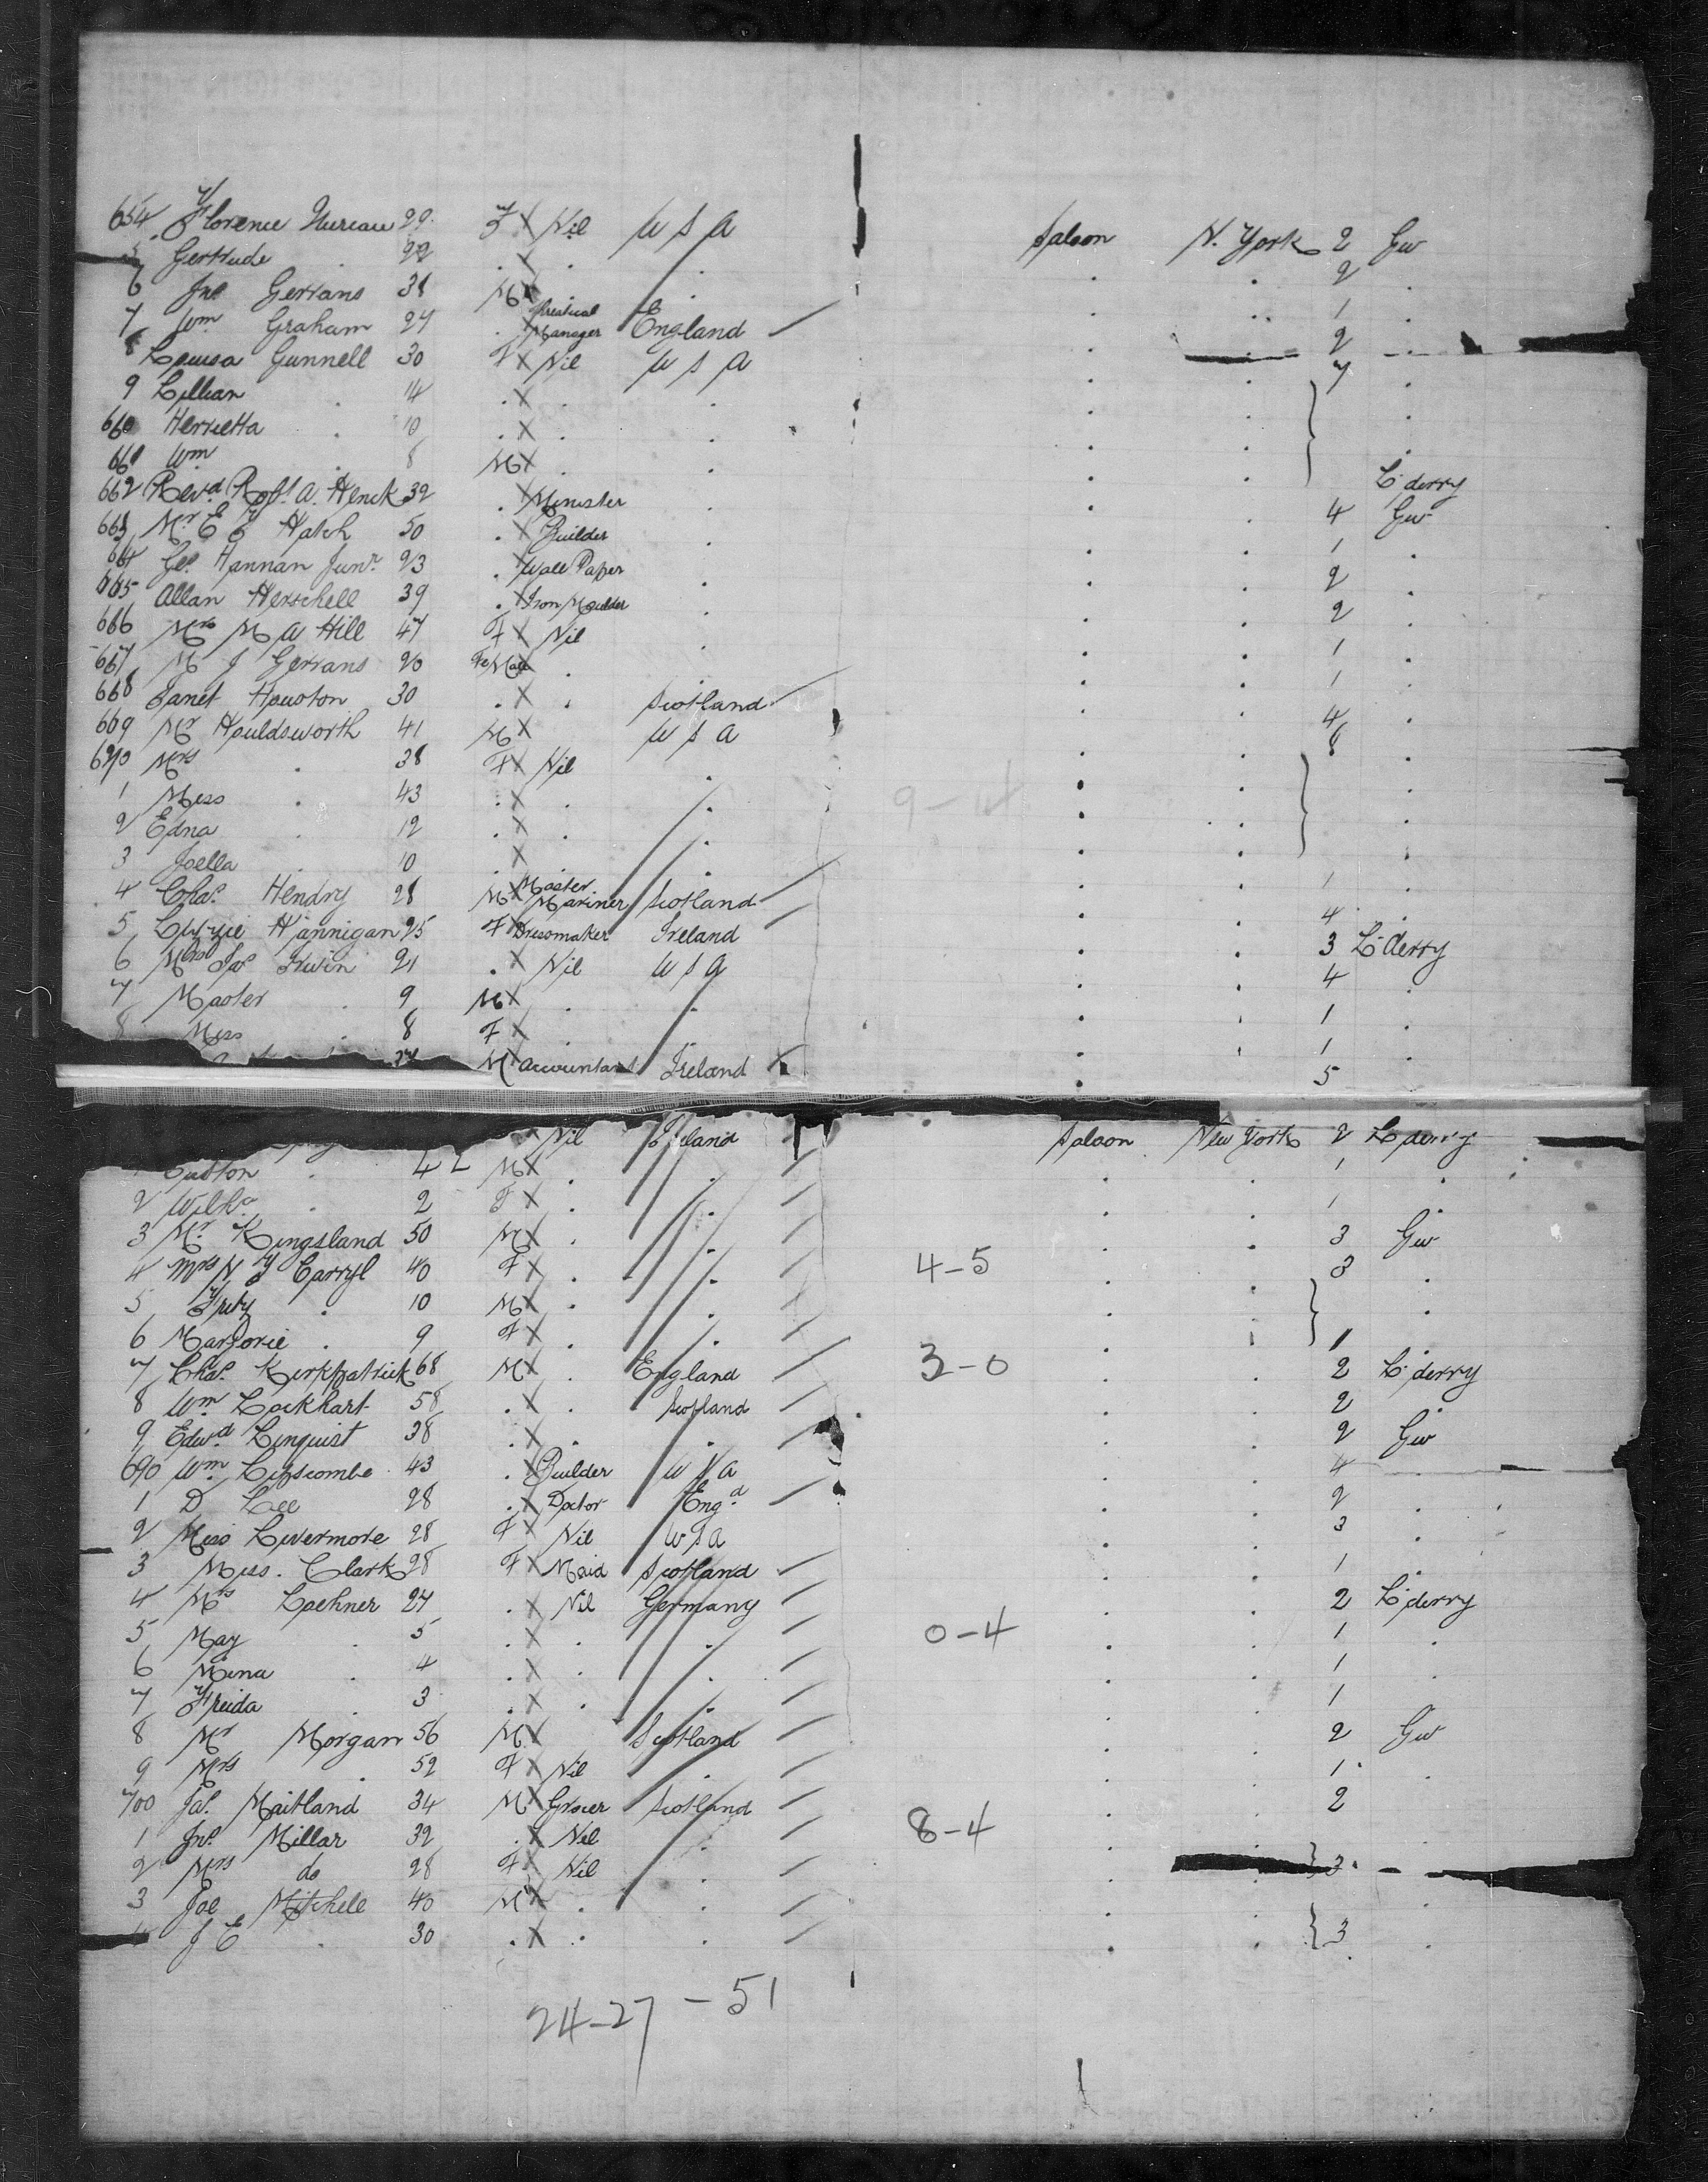 654 Florence Nureau 29 F X Nil U S A Saloon N. York 2 Gw
5 Gertrude . 22 . X . . . . 2 .
6 Jno Gerrans 38 M X . . . 1 .
7 Wm Graham 27 . X Manager England / . . 2 .
8 Louisa Gunnell 30 F X Nil U S A . . 7 .
9 Lillian . 14 . X . . . . .
660 Henrietta . 10 . X . . . . .
661 Wm . 8 M X . . . . L'derry
662 Revd Robt. A. Henck 32 . X Minister . . . 4 Gw
663 Mr E J Hatch 50 . X Builder . . . 1 .
664 Geo. Hannan Junr. 23 . X Wall Paper . . . 2 .
665 Allan Herschell 39 . X Iron Moulder . . . 2 .
666 Mrs M A Hill 47 F X Nil . . . 1 .
667 M J Gerrans 20 FeMale X . . . . 1 .
668 Janet Houston 30 . X . Scotland / . . 4 .
669 Mr Houldsworth 41 M X U S A . . 8 .
670 Mrs . 38 F X Nil . . . .
1 Miss . 43 . X . . 9-4 . . .
2 Edna . 12 . X . . . . .
3 Joella . 10 . X . . . . .
4 Chas. Hendry 28 M X Master Mariner Scotland / . . 1 .
5 Lizzie Hannigan 25 F X Dressmaker Ireland / . . 4 .
6 Mrs Jas Irwin 21 . X Nil U S A . . 3 L'derry
7 Master . 9 M X . . . . 4 .
8 Miss . 8 F X . . . . 1 .
M X Accountant Ireland X . . 1 .
. 5
Nil Ireland Saloon New York 2 L'derry
. 4 M X . . / . . 1 .
2 . 2 F X . . / . . 1 .
3 Mr. Kingsland 50 M X . . / . . 3 Gw
4 Mrs N J Carryl 40 F X . . / 4-5 . . 3 .
5 Fritz . 10 M X . . / . . .
6 Marjorie . 9 F X . . / . . 1
7 Chas. Kirkpatrick 68 M X . England / 3-0 . . 2 L'derry
8 Wm Lockhart 58 . X . Scotland / . . 2 .
9 Edwd Linquist 38 . X . . / . . 2 Gw
690 Wm Lipscombe 43 . X Builder U S A . . 4 .
1 D Lee 28 . X Doctor Engd. / . . 2 .
2 Miss Livermore 28 F X Nil U S A . . 3 .
3 Miss. Clark 28 F X Maid Scotland / . . 1 .
4 Mrs Loehner 27 . X Nil Germany / . . 2 L'derry
5 May . 5 . X . . / 0-4 . . 1 .
6 Mina . 4 . X . . / . . 1 .
7 Freida . 3 . X . . / . . 1 .
8 Mr Morgan 56 M X Scotland / . . 2 Gw
9 Mrs . 52 F X Nil . / . . 1 .
700 Jas. Maitland 34 M X Grocer Scotland / . . 2
1 Jno. Millar 32 . X Nil . / 8-4 . .
2 Mrs do 28 F X Nil . / . . 3 .
3 Joe Mitchell 40 M X . . / . .
J E . 30 . X . . / . . 3 .
24-27 - 51